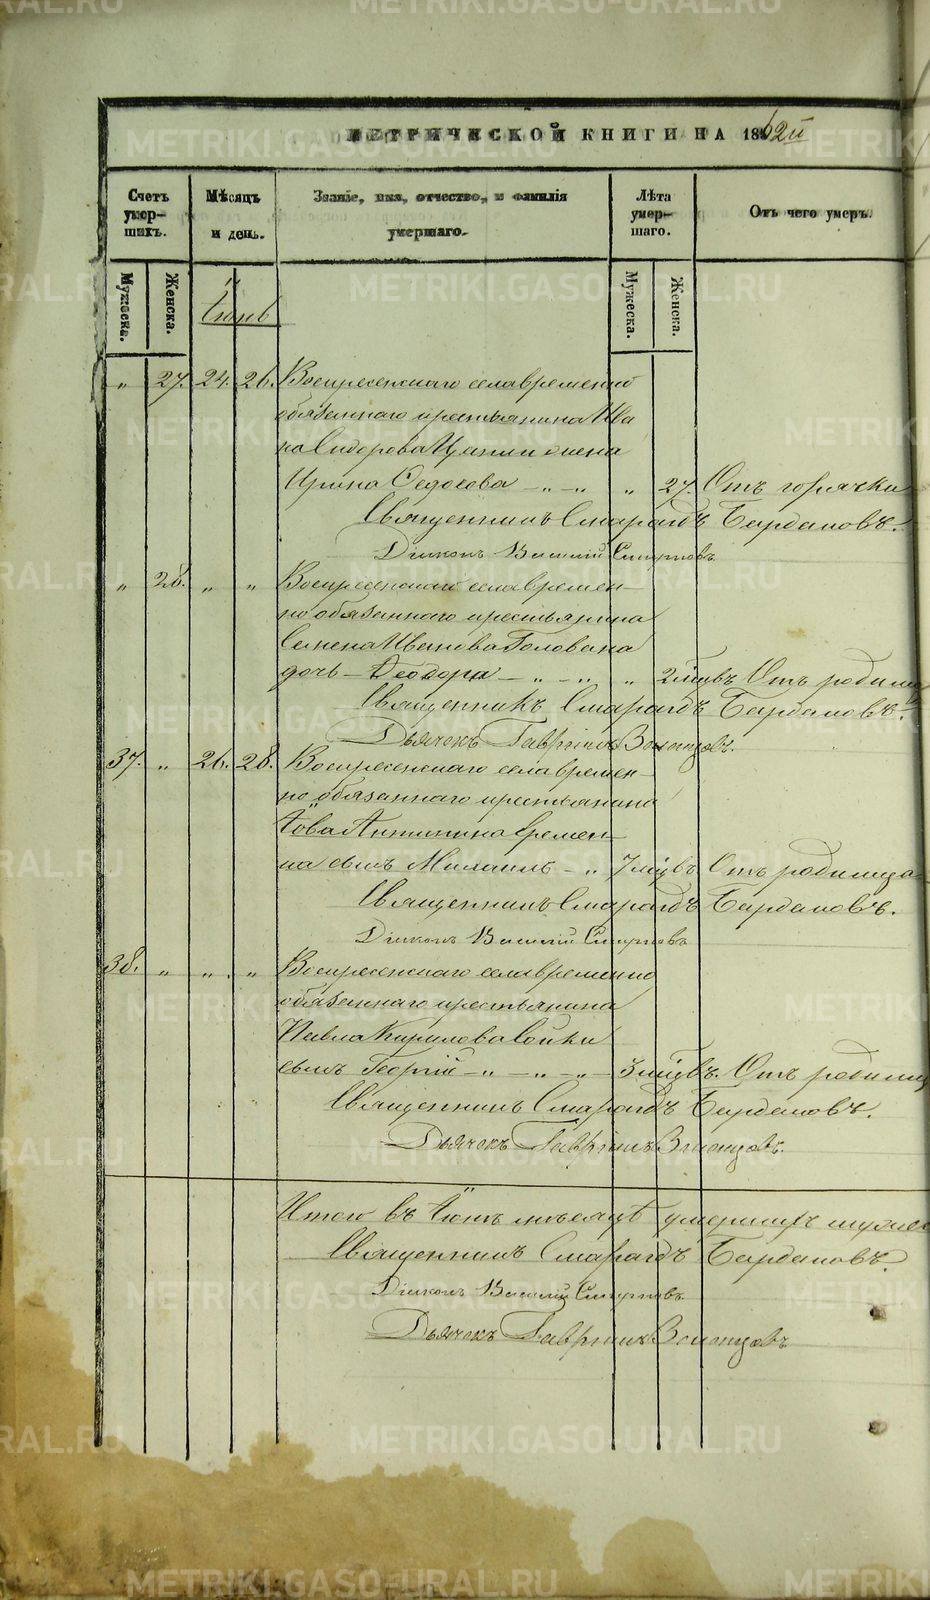 МЕТРИЧЕСКОЙ КНИГИ НА 1862й
Счетъ умер- шихъ.
Мѣсяцъ и день.
Званіе, имя, отчество, и фамилія умершаго.
Лѣта умер- шаго.
Отъ чего умеръ.
Мужеска.
Женска.
Іюнь
Мужеска.
Женска.
„ 27. 24. 26. Воскресенскаго села временно
обязаннаго крестьянина Ива
на Сидорова жена
Ирина Федосова – „ – „ „ 27. Отъ горячки
Священникъ Смарагдъ Бардаковъ.
Діаконъ Василій Смирновъ
„ 28. „ „ Воскресенскаго села времен-
но обязаннаго крестьянина
Семена Иванова Голована
дочь – Ѳеодора – „ – „ – „ 2 мцвъ Отъ родимца
Священникъ Смарагдъ Бардаковъ.
Дьячекъ Гавріилъ
37. „ 26. 28. Воскресенскаго села времен-
но обязаннаго крестьянина
Іова Антипина Времен-
на сынъ Михаилъ – „ 7 мцвъ Отъ родимца
Священникъ Смарагдъ Бардаковъ.
Діаконъ Василій Смирновъ
38. „ „ „ Воскресенскаго села временно
обязаннаго крестьянина
Павла Кирилова Сойки
сынъ Георгій – „ – „ – „ – 3 мцвъ. Отъ родимц
Священникъ Смарагдъ Бардаковъ.
Дьячекъ Гавріилъ
Итого въ Іюнѣ мѣсяцѣ умершихъ мужес
Священникъ Смарагдъ Бардаковъ.
Діаконъ Василій Смирновъ
Дьячекъ Гавріилъ
METRIKI.GASO-URAL.RU